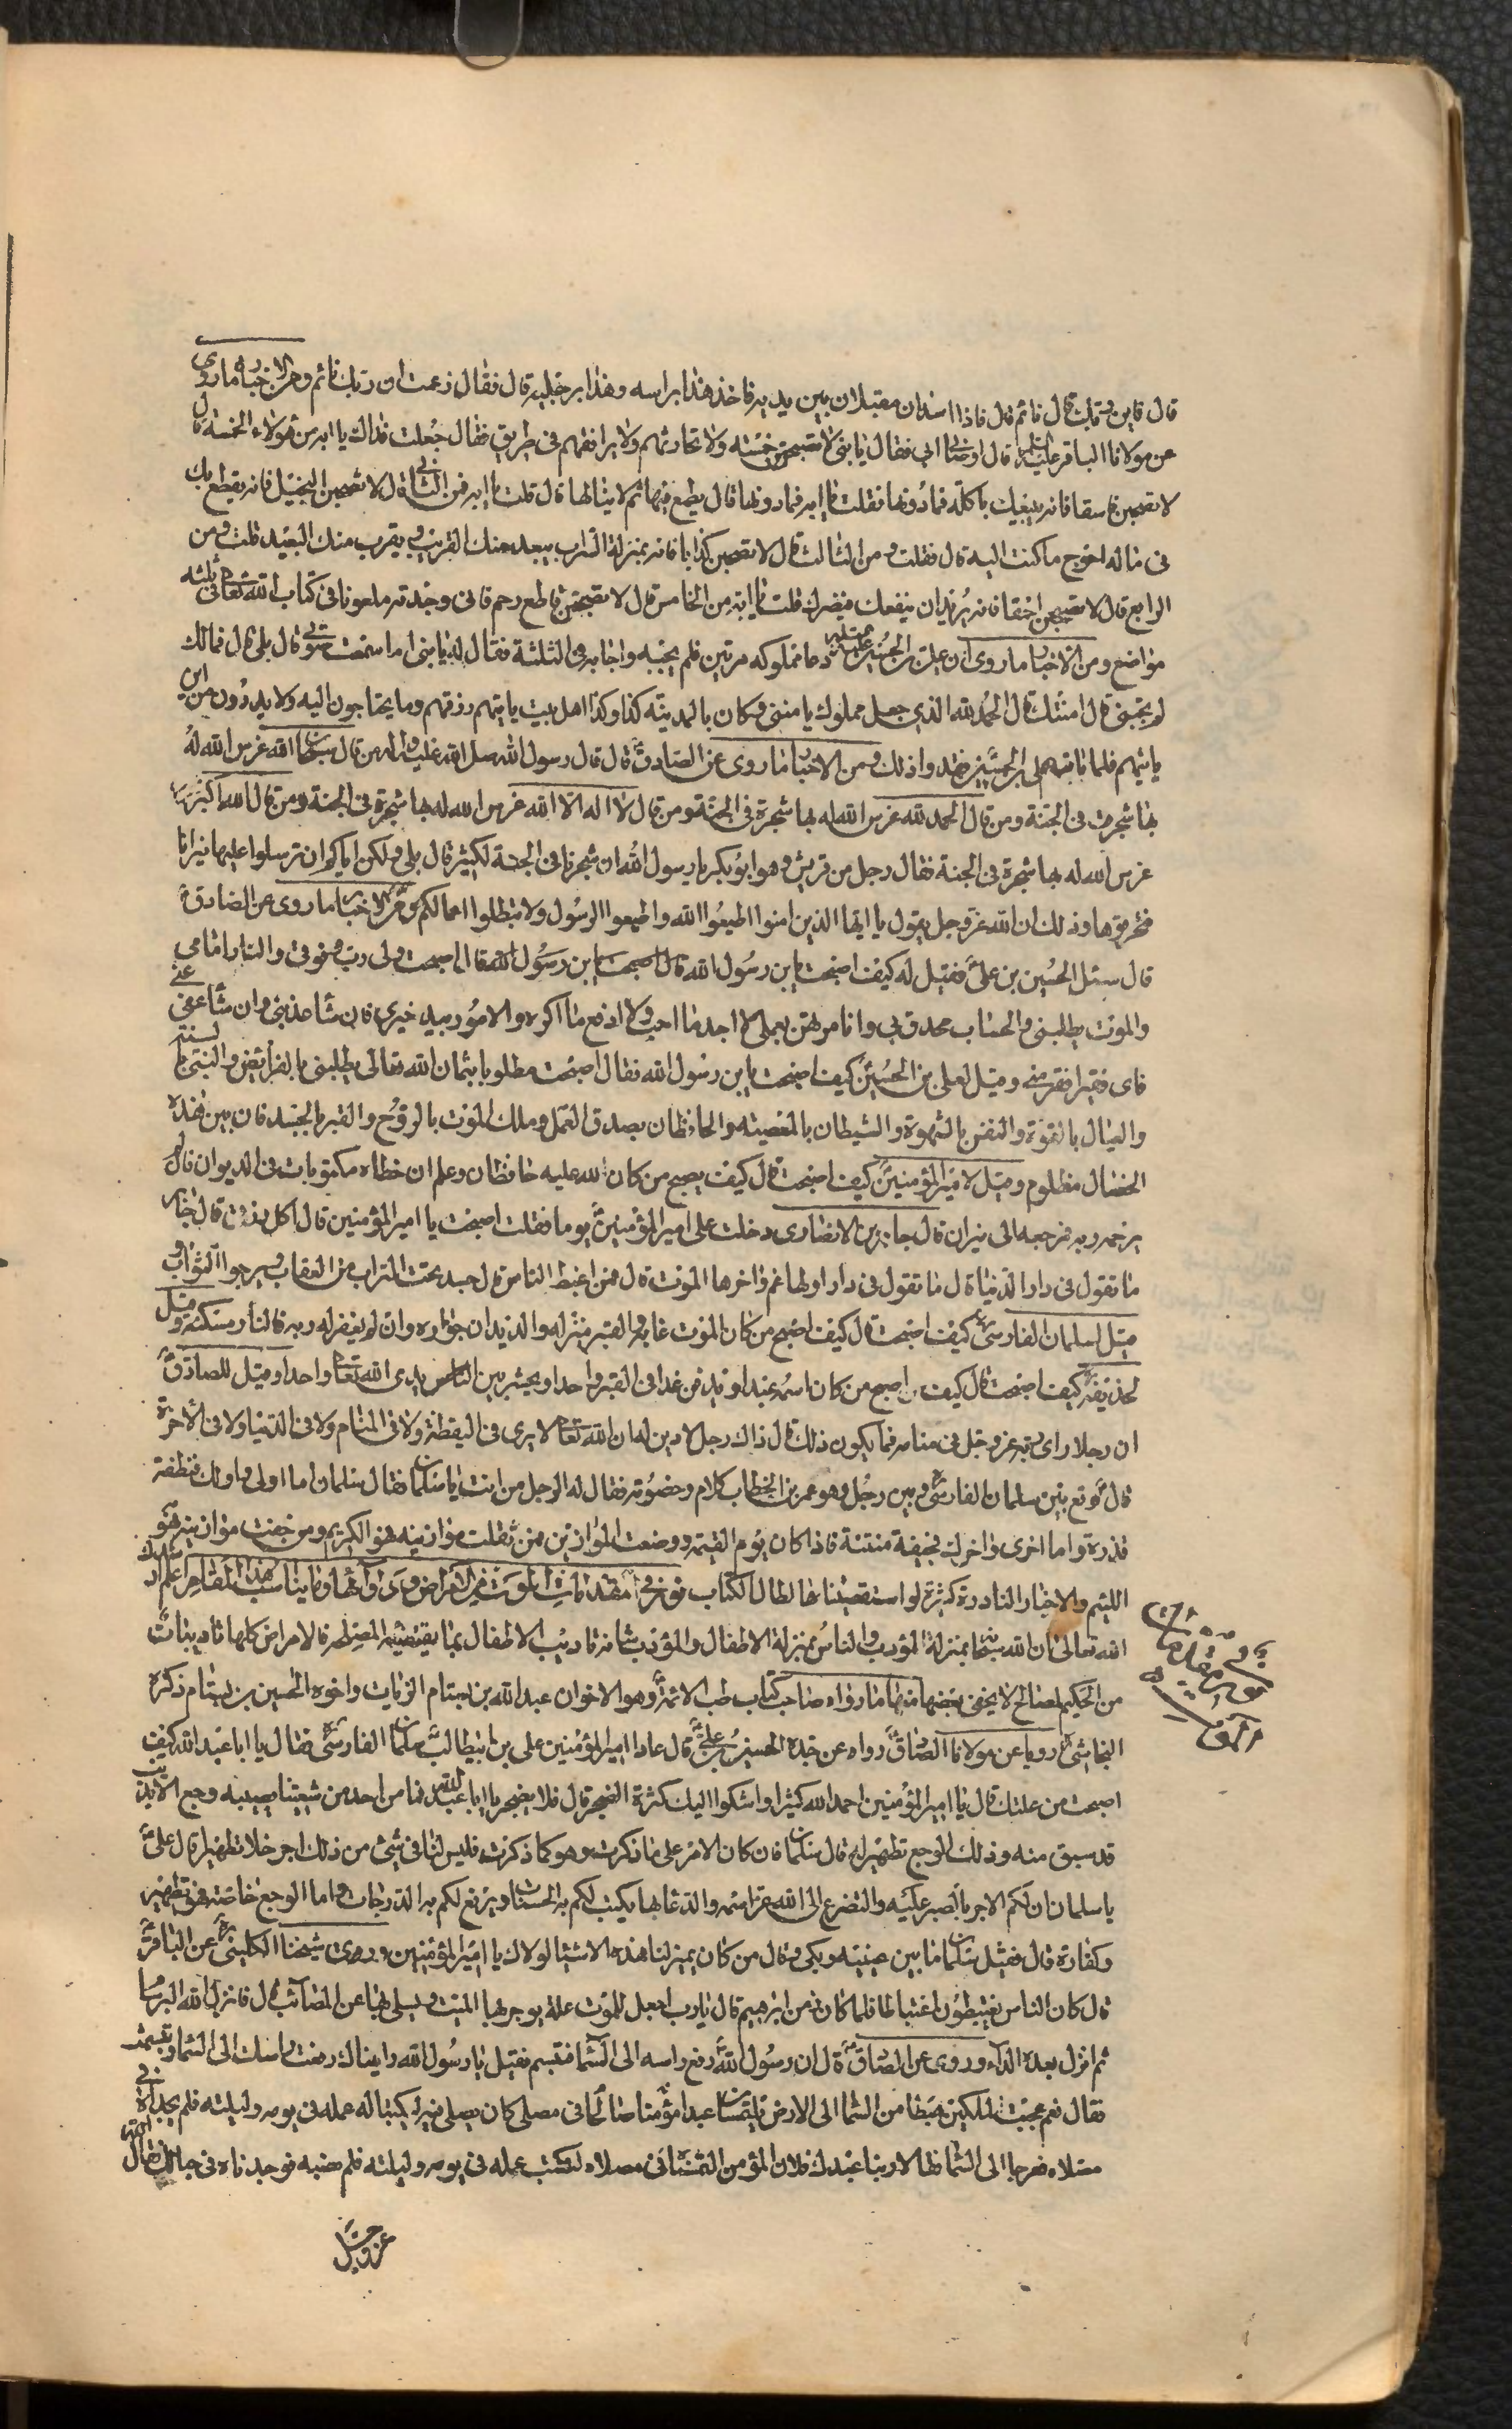 قال فاين ربك قال نائم قال فاذا اسدان مقبلان بين يديه فاخذ هذا براسه وهذا برجليه قال فقال زعمت ان ربك نائم ومن الاخبار ما روى
عن مولانا الباقر عليه السلم قال اوصانى ابى فقال يا بنى لا تصحبن خمسة ولا تحادثهم ولا ترافقهم فى طريق فقال جعلت فداك يا ابه من هؤلاء الخمسة قال
لا تصحبن فاسقا فانه يبيعك باكلة فما دونها فقلت يا ابه فما دونها قال يطمع فيها ثم لا ينالها قال قلت يا ابه فمن الثانى قال لا تصحبن البخيل فانه يقطع بك
فى ماله احوج ما كنت اليه قال فقلت ومن الثالث قال لا تصحبن كذابا فانه بمنزلة السراب يبعد منك القريب ويقرب منك البعيد قلت ومن
الرابع قال لا تصحبن احمقا فانه يريد ان ينفعك فيضرك قلت يا ابه من الخامس قال لا تصحبن قاطع رحم فانى وجدته ملعونا فى كتاب الله تعالى فى ثلثه
مواضع ومن الاخبار ما روى ان على بن الحسين عليه السلم دعا مملوكه مرتين فلم يجبه واجابه فى الثلثة فقال له يا بنى اما سمعت صوتى قال بلى قال فمالك
لم تجبنى قال امنتك قال الحمد لله الذى جعل مملوك يا منى وكان بالمدينة كذا وكذا اهل بيت ياتيهم رزقهم وما يحتاجون اليه ولا يدرون من اين
ياتيهم فلما مات على بن الحسين فقدوا ذلك ومن الاخبار ما روى عن الصادق ع قال قال رسول الله صلى الله عليه واله من قال سبحان الله غرس الله له
بها شجرة فى الجنة ومن قال الحمد لله غرس الله له بها شجرة فى الجنة ومن قال لا اله الا الله غرس الله له بها شجرة فى الجنة ومن قال الله اكبر
غرس الله له بها شجرة فى الجنة فقال رجل من قريش وهو ابو بكر يا رسول الله ان شجرنا فى الجنة لكثير قال بلى ولكن اياكم ان ترسلوا عليها نيرانا
فتحرقوها وذلك ان الله عز وجل يقول يا ايها الذين امنوا اطيعوا الله واطيعوا الرسول ولا تبطلوا اعمالكم ومن الاخبار ما روى عن الصادق ع
قال سئل الحسين بن على ع فقيل له كيف اصبحت يا بن رسول الله قال اصبحت ولى رب فوقى والنار امامى
والموت يطلبنى والحساب محدق بى وانا مرتهن بعملى لا اجد ما احب ولا ادفع ما اكره والامور بيد غيرى فان شا عذبنى وان شا عفى عنى
فاى فقير افقر منى وقيل لعلى بن الحسين ع كيف اصبحت يا بن رسول الله فقال اصبحت مطلوبا بثمان الله تعالى يطلبنى بالفرائض والنبى بالسنة
والعيال بالقوة والنفس بالشهوة والشيطان بالمعصية والحافظان بصدق العمل وملك الموت بالروح والقبر بالجسد فان بين هذه
الخصال مظلوم وقيل لامير المؤمنين ع كيف اصبحت قال كيف يصبح من كان لله عليه حافظان وعلم ان خطاه مكتوبات فى الديوان فان لم
يرحمه ربه فمرجعه الى نيران قال جابر بن الانصارى دخلت على امير المؤمنين ع يوما فقلت اصبحت يا امير المؤمنين قال اكل رزقى قال جابر
ما تقول فى دار الدنيا قال ما تقول فى دار اولها غم واخرها الموت قال فمن اغبط الناس قال جسد تحت التراب من العقاب ويرجوا الثواب
قيل لسلمان الفارسى كيف اصبحت قال كيف اصبح من كان الموت غايه والقبر منزله والديدان جواره وان لم يغفر له ربه فالنار مسكنه وقيل
لحذيفة كيف اصبحت قال كيف اصبح من كان اسمه عبدا ويدفن غدا فى القبر واحدا ويحشر بين الناس يدى الله تعالى واحدا وقيل للصادق ع
ان رجلا راى ربه عز وجل فى منامه فما يكون ذلك قال ذاك رجل لا دين له ان الله تعالى لا يرى فى اليقظة ولا فى المنام ولا فى الدنيا ولا فى الاخرة
قال وقع بين سلمان الفارسى وبين رجل وهو عمر بن الخطاب كلام وخصومة فقال له الرجل من انت يا سلمان فقال سلمان اما اولى واولك فنطفة
قذرة واما اخرى واخرك فجيفة منتنة فاذا كان يوم القيمة ووضعت الموازين فمن ثقلت موازينه فهو الكريم ومن خفت موازينه فهو
اللئيم والاخبار النادرة كثيرة لو استقصيناها لطال الكتاب نور فى مقدمات الموت من الامراض ودوائها وما يناسب هذا المقام اعلم ايدك
الله تعالى ان الله سبحانه بمنزلة المؤدب والناس بمنزلة الاطفال والمؤدب شانه تاديب الاطفال بما يقتضيه فالامراض كلها تاديبات
من الحكيم لمصالح لا يخفى بعضها منها ما رواه صاحب كتاب طب الائمة ع وهو الاخوان عبد الله بن بسطام الزيات واخوه الحسين بن بسطام ذكره
النجاشى رويا عن مولانا الصادق ع رواه عن جده الحسين بن على ع قال عاد امير المؤمنين على بن ابيطالب ع سلمان الفارسى فقال يا ابا عبد الله كيف
اصبحت من علتك قال يا امير المؤمنين احمد الله كثيرا واشكوا اليك كثرة الضجر قال فلا تضجر يا ابا عبد الله فما من احد من شيعتنا يصيبه وجع الا بذنب
قد سبق منه وذلك الوجع تطهير له قال سلمان فان كان الامر على ما ذكرت وهو كما ذكرت فليس لنا فى شئ من ذلك اجر خلا تطهير قال على ع
يا سلمان ان لكم الاجر بالصبر عليه والتضرع الى الله عز اسمه والدعا بها يكتب لكم به الحسنات ويرفع لكم به الدرجات واما الوجع خاصة فهو تطهير
وكفارة قال فقبل سلمان ما بين عينيه وبكى وقال من كان يميز لنا هذه الاشيا لولاك يا امير المؤمنين وروى شيخنا الكلينى عن الباقر ع
قال كان الناس يغتبطون اغتباطا فلما كان زمن ابرهيم قال يا رب اجعل للموت علة يوجر بها الميت ويسلى بها عن المصائب قال فانزل الله البرسام
ثم انزل بعده الداء وروى عن الصادق ع قال ان رسول الله ص رفع راسه الى السما فتبسم فقيل يا رسول الله رايناك رفعت راسك الى السما وتبسمت
فقال نعم عجبت لملكين هبطا من السما الى الارض يلتمسان عبدا مؤمنا صالحا فى مصلى كان يصلى فيه ليكتبا له عمله فى يومه وليلته فلم يجداه فى
مصلاه فعرجا الى السما فقالا ربنا عبدك فلان المؤمن التمسناه فى مصلاه لنكتب عمله فى يومه وليلته فلم نصبه فوجدناه فى حبالك فقال الله
عز وجل
نور فى مقدمات
الموت